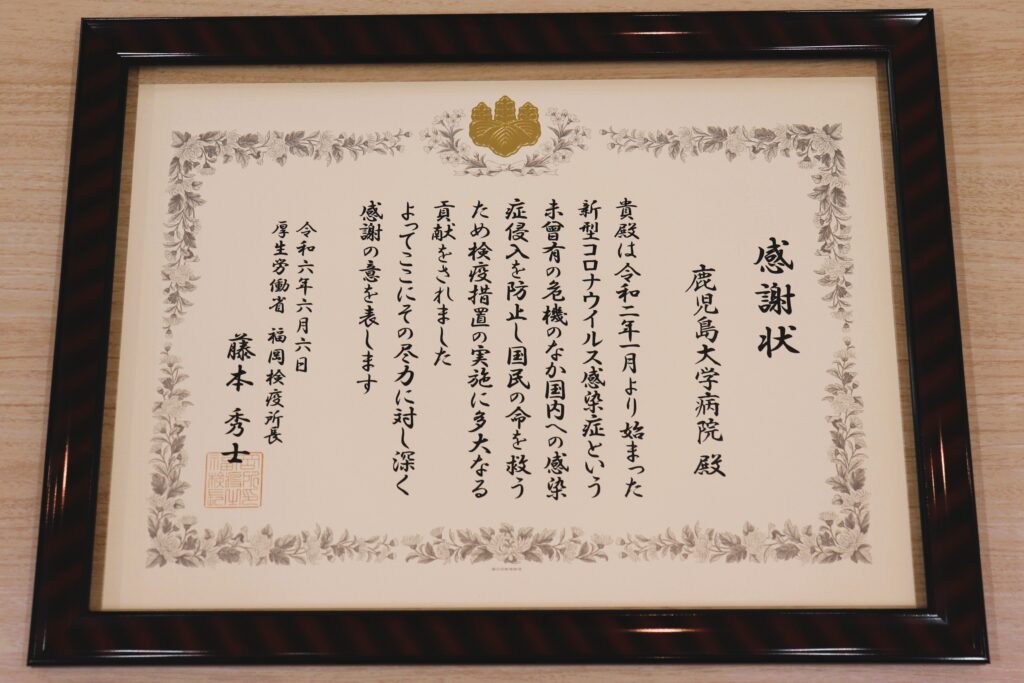 感謝状
鹿児島大学病院 殿
貴殿は令和二年一月より始まった
新型コロナウイルス感染症という
未曾有の危機のなか国内への感染
症侵入を防止し国民の命を救う
ため検疫措置の実施に多大なる
貢献をされました
よってここにその尽力に対し深く
感謝の意を表します
令和六年六月六日
厚生労働省 福岡検疫所長
藤本 秀士